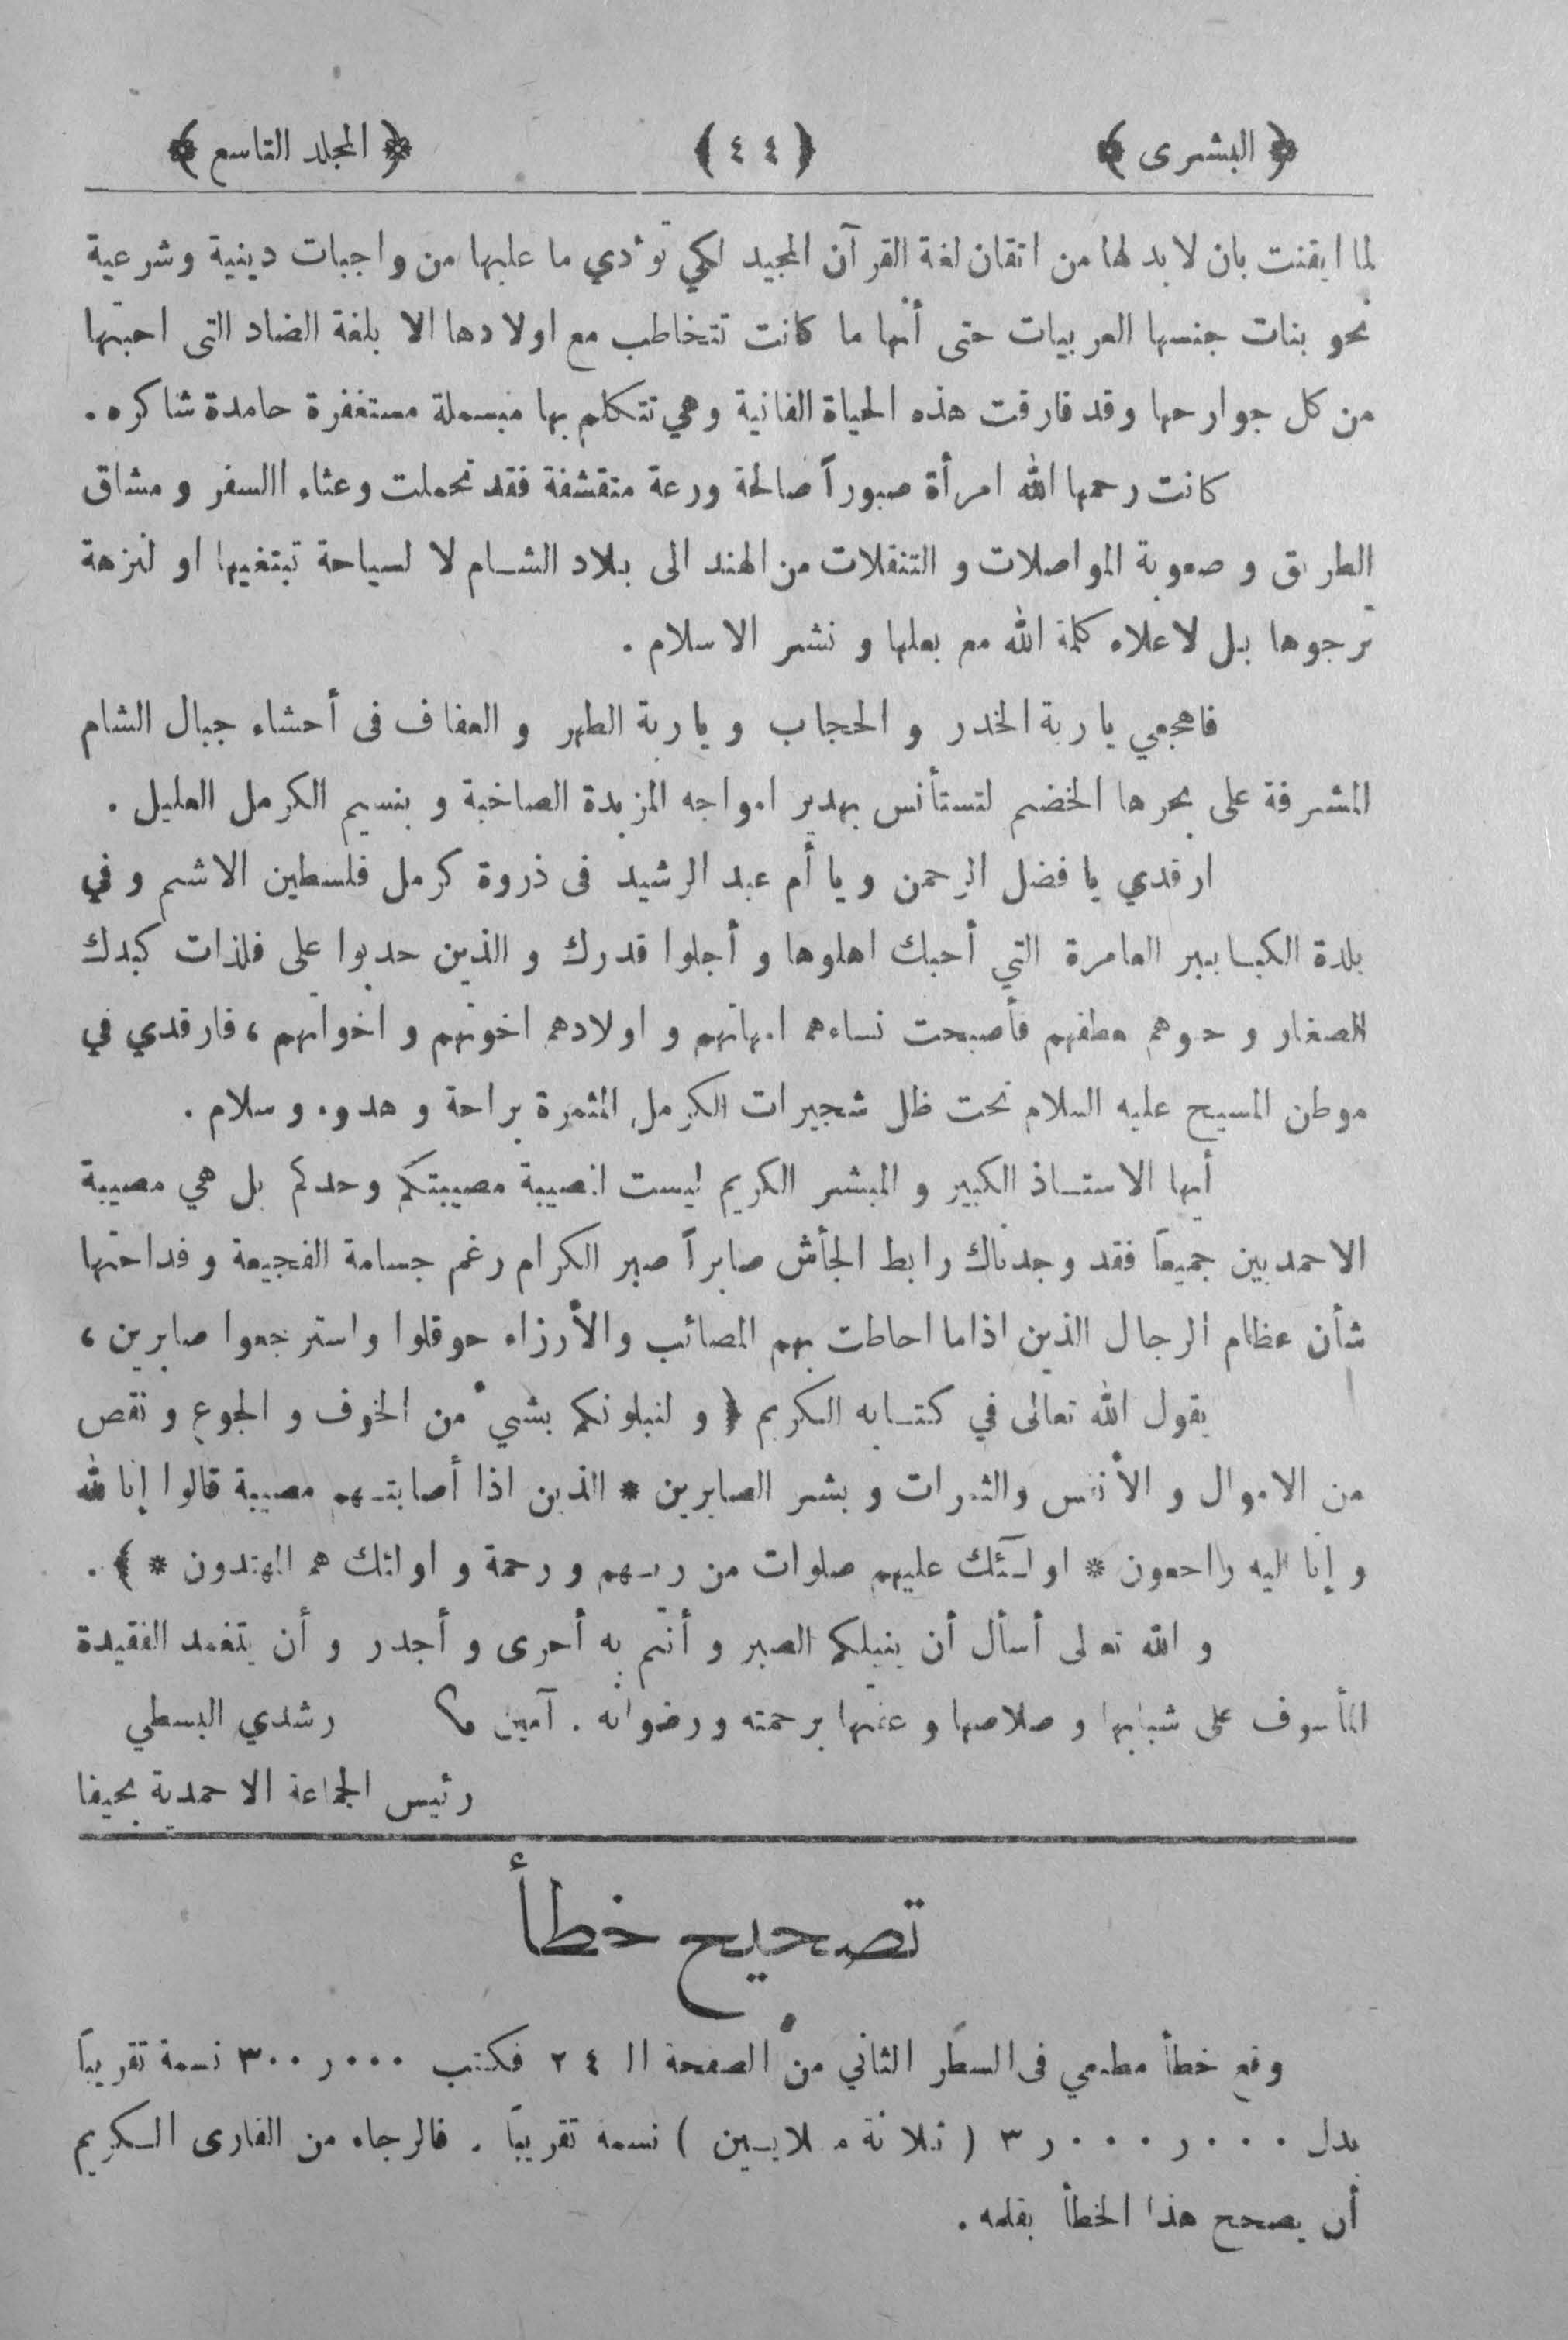 ﴿ البشرى ﴾ ﴿ ٤٤ ﴾ ﴿ المجلد التاسع ﴾
لما ايقنت بان لابد لها من اتقان لغة القرآن المجيد لكي تؤدي ما عليها من واجبات دينية وشرعية
نحو بنات جنسها العربيات حتى أنها ما كانت تتخاطب مع اولادها الا بلغة الضاد التى احبتها
من كل جوارحها وقد فارقت هذه الحياة الفانية وهي تتكلم بها مبسملة مستغفرة حامدة شاكره .
كانت رحمها الله امرأة صبوراً صالحة ورعة متقشفة فقد تحملت وعثاء االسفر و مشاق
الطريق و صعوبة المواصلات و التنقلات من الهند الى بلاد الشام لا لسياحة تبتغيها او لنزهة
ترجوها بل لاعلاء كلمة الله مع بعلها و نشر الاسلام .
فاهجعي يا ربة الخدر و الحجاب و يا ربة الطهر و العفاف فى أحشاء جبال الشام
المشرفة على بحرها الخضم لتستأنس بهدير امواجه المزبدة الصاخبة و بنسيم الكرمل العليل .
ارقدي يا فضل الرحمن و يا أم عبد الرشيد فى ذروة كرمل فلسطين الاشم و في
بلدة الكبابير العامرة التي أحبك اهلوها و أجلوا قدرك و الذين حدبوا على فلذات كبدك
الصغار و حبوهم عطفهم فأصبحت نساءهم امهاتهم و اولادهم اخوتهم و اخواتهم ، فارقدي في
موطن المسيح عليه السلام تحت ظل شجيرات الكرمل المثمرة براحة و هدوء وسلام .
أيها الاستاذ الكبير و المبشر الكريم ليست المصيبة مصيبتكم وحدكم بل هي مصيبة
الاحمديين جميعاً فقد وجدناك رابط الجأش صابراً صبر الكرام رغم جسامة الفجيعة و فداحتها
شأن عظام الرجال الذين اذاما احاطت بهم المصائب والأرزاء حوقلوا واسترجعوا صابرين ،
يقول الله تعالى في كتابه الكريم ﴿ و لنبلونكم بشيء من الخوف و الجوع و نقص
من الاموال و الأنفس والثمرات و بشر الصابرين * الذين اذا أصابتهم مصيبة قالوا إنا لله
و إنا اليه راجعون * اولـئك عليهم صلوات من ربهم و رحمة و اولئك هم المهتدون * ﴾ .
و الله تعالى أسأل أن ينيلكم الصبر و أنتم به أحرى و أجدر و أن يتغمد الفقيدة
المأسوف على شبابها و صلاحها و علمها برحمته ورضوانه . آمين رشدي البسطي
رئيس الجماعة الاحمدية بحيفا
تصحيح خطأ
وقع خطأ مطبعي فى السطر الثاني من الصفحة الـ ٢٤ فكتب ٣٠٠ر٠٠٠ نسمة تقريباً
بدل ٣ر٠٠٠ر٠٠٠ ( ثلاثة ملايين ) نسمة تقريباً . فالرجاء من القارى الكريم
أن يصحح هذا الخطأ بقلمه .